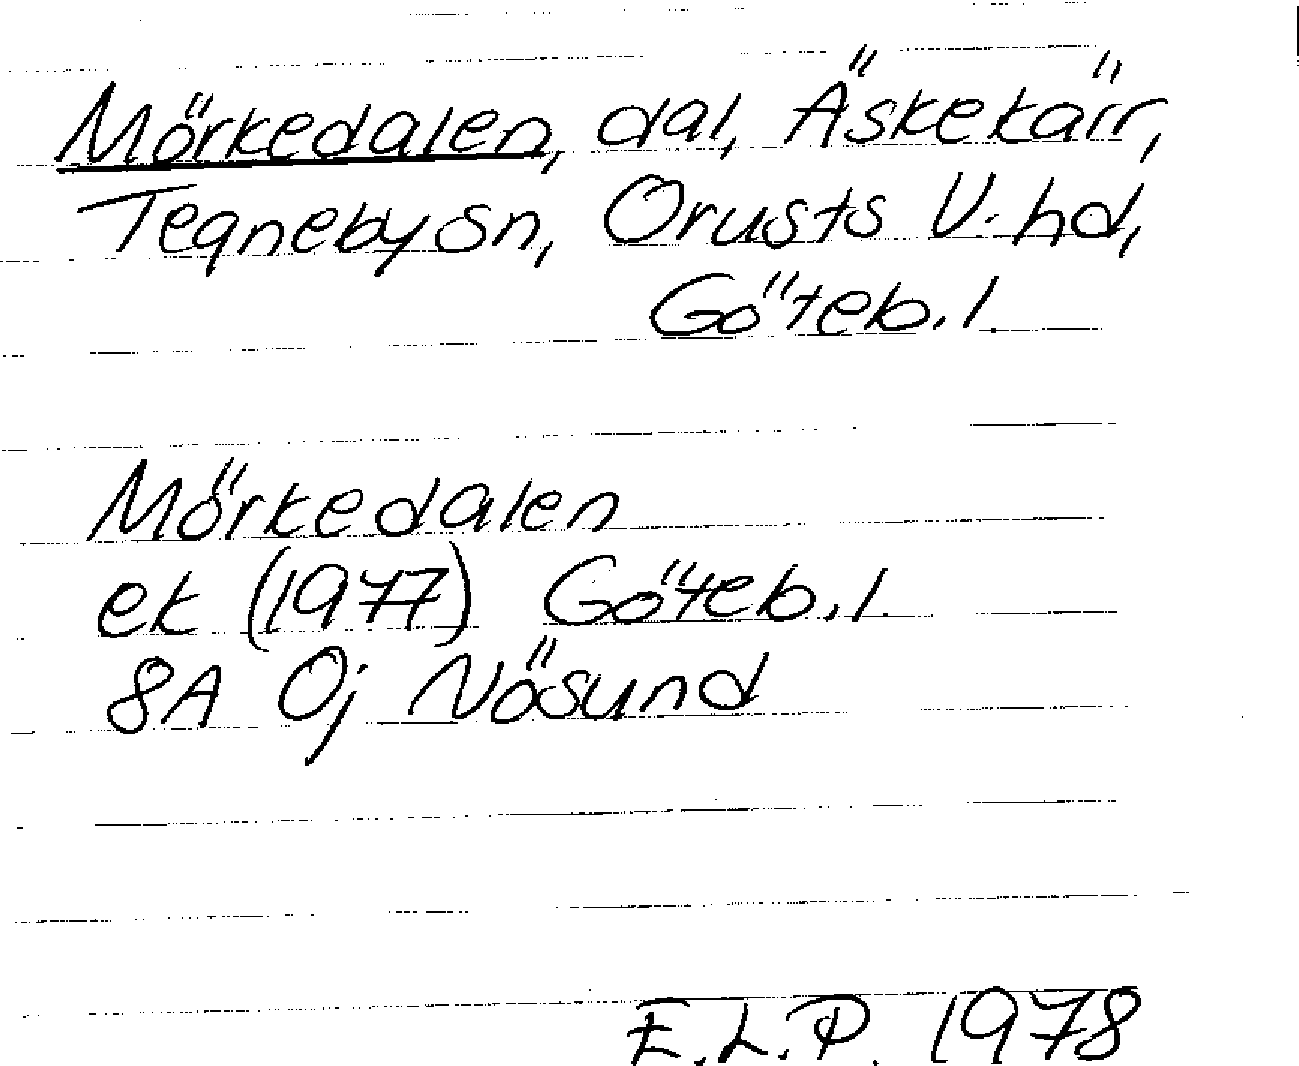 Mörkedalen, dal, Äskekärr,
Tegneby sn, Orusts V. hd,
Göteb. l.
Mörkedalen
ek (1977) Göteb. l.
8A 0j Nösund
E.L.P. 1978